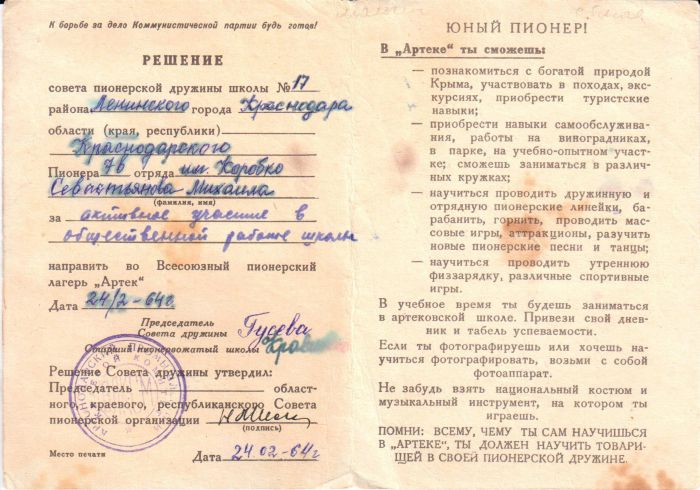 К борьбе за дело Коммунистической партии будь готов!
РЕШЕНИЕ
совета пионерской дружины школы № 17
района Ленинского города Краснодара
области (края, республики)
Краснодарского
Пионера 7б отряда им. Коробко
Севастьянова Михаила
(фамилия, имя)
за активное участие в
общественной работе школы
направить во Всесоюзный пионерский
лагерь „Артек"
Дата 24/2-64г.
Председатель
Совета дружины Гусева
Старший пионервожатый школы
Решение Совета дружины утвердил:
Председатель област-
ного, краевого, республиканского Совета
пионерской организации
(подпись)
Место печати Дата 24.02-64г.
ЮНЫЙ ПИОНЕР!
В „Артеке" ты сможешь:
— познакомиться с богатой природой
Крыма, участвовать в походах, экс-
курсиях, приобрести туристские
навыки;
— приобрести навыки самообслужива-
ния, работы на виноградниках,
в парке, на учебно-опытном участ-
ке; сможешь заниматься в различ-
ных кружках;
— научиться проводить дружинную и
отрядную пионерские линейки, ба-
рабанить, горнить, проводить мас-
совые игры, аттракционы, разучить
новые пионерские песни и танцы;
— научиться проводить утреннюю
физзарядку, различные спортивные
игры.
В учебное время ты будешь заниматься
в артековской школе. Привези свой днев-
ник и табель успеваемости.
Если ты фотографируешь или хочешь на-
учиться фотографировать, возьми с собой
фотоаппарат.
Не забудь взять национальный костюм и
музыкальный инструмент, на котором ты
играешь.
ПОМНИ: ВСЕМУ, ЧЕМУ ТЫ САМ НАУЧИШЬСЯ
В „АРТЕКЕ", ТЫ ДОЛЖЕН НАУЧИТЬ ТОВАРИ-
ЩЕЙ В СВОЕЙ ПИОНЕРСКОЙ ДРУЖИНЕ.